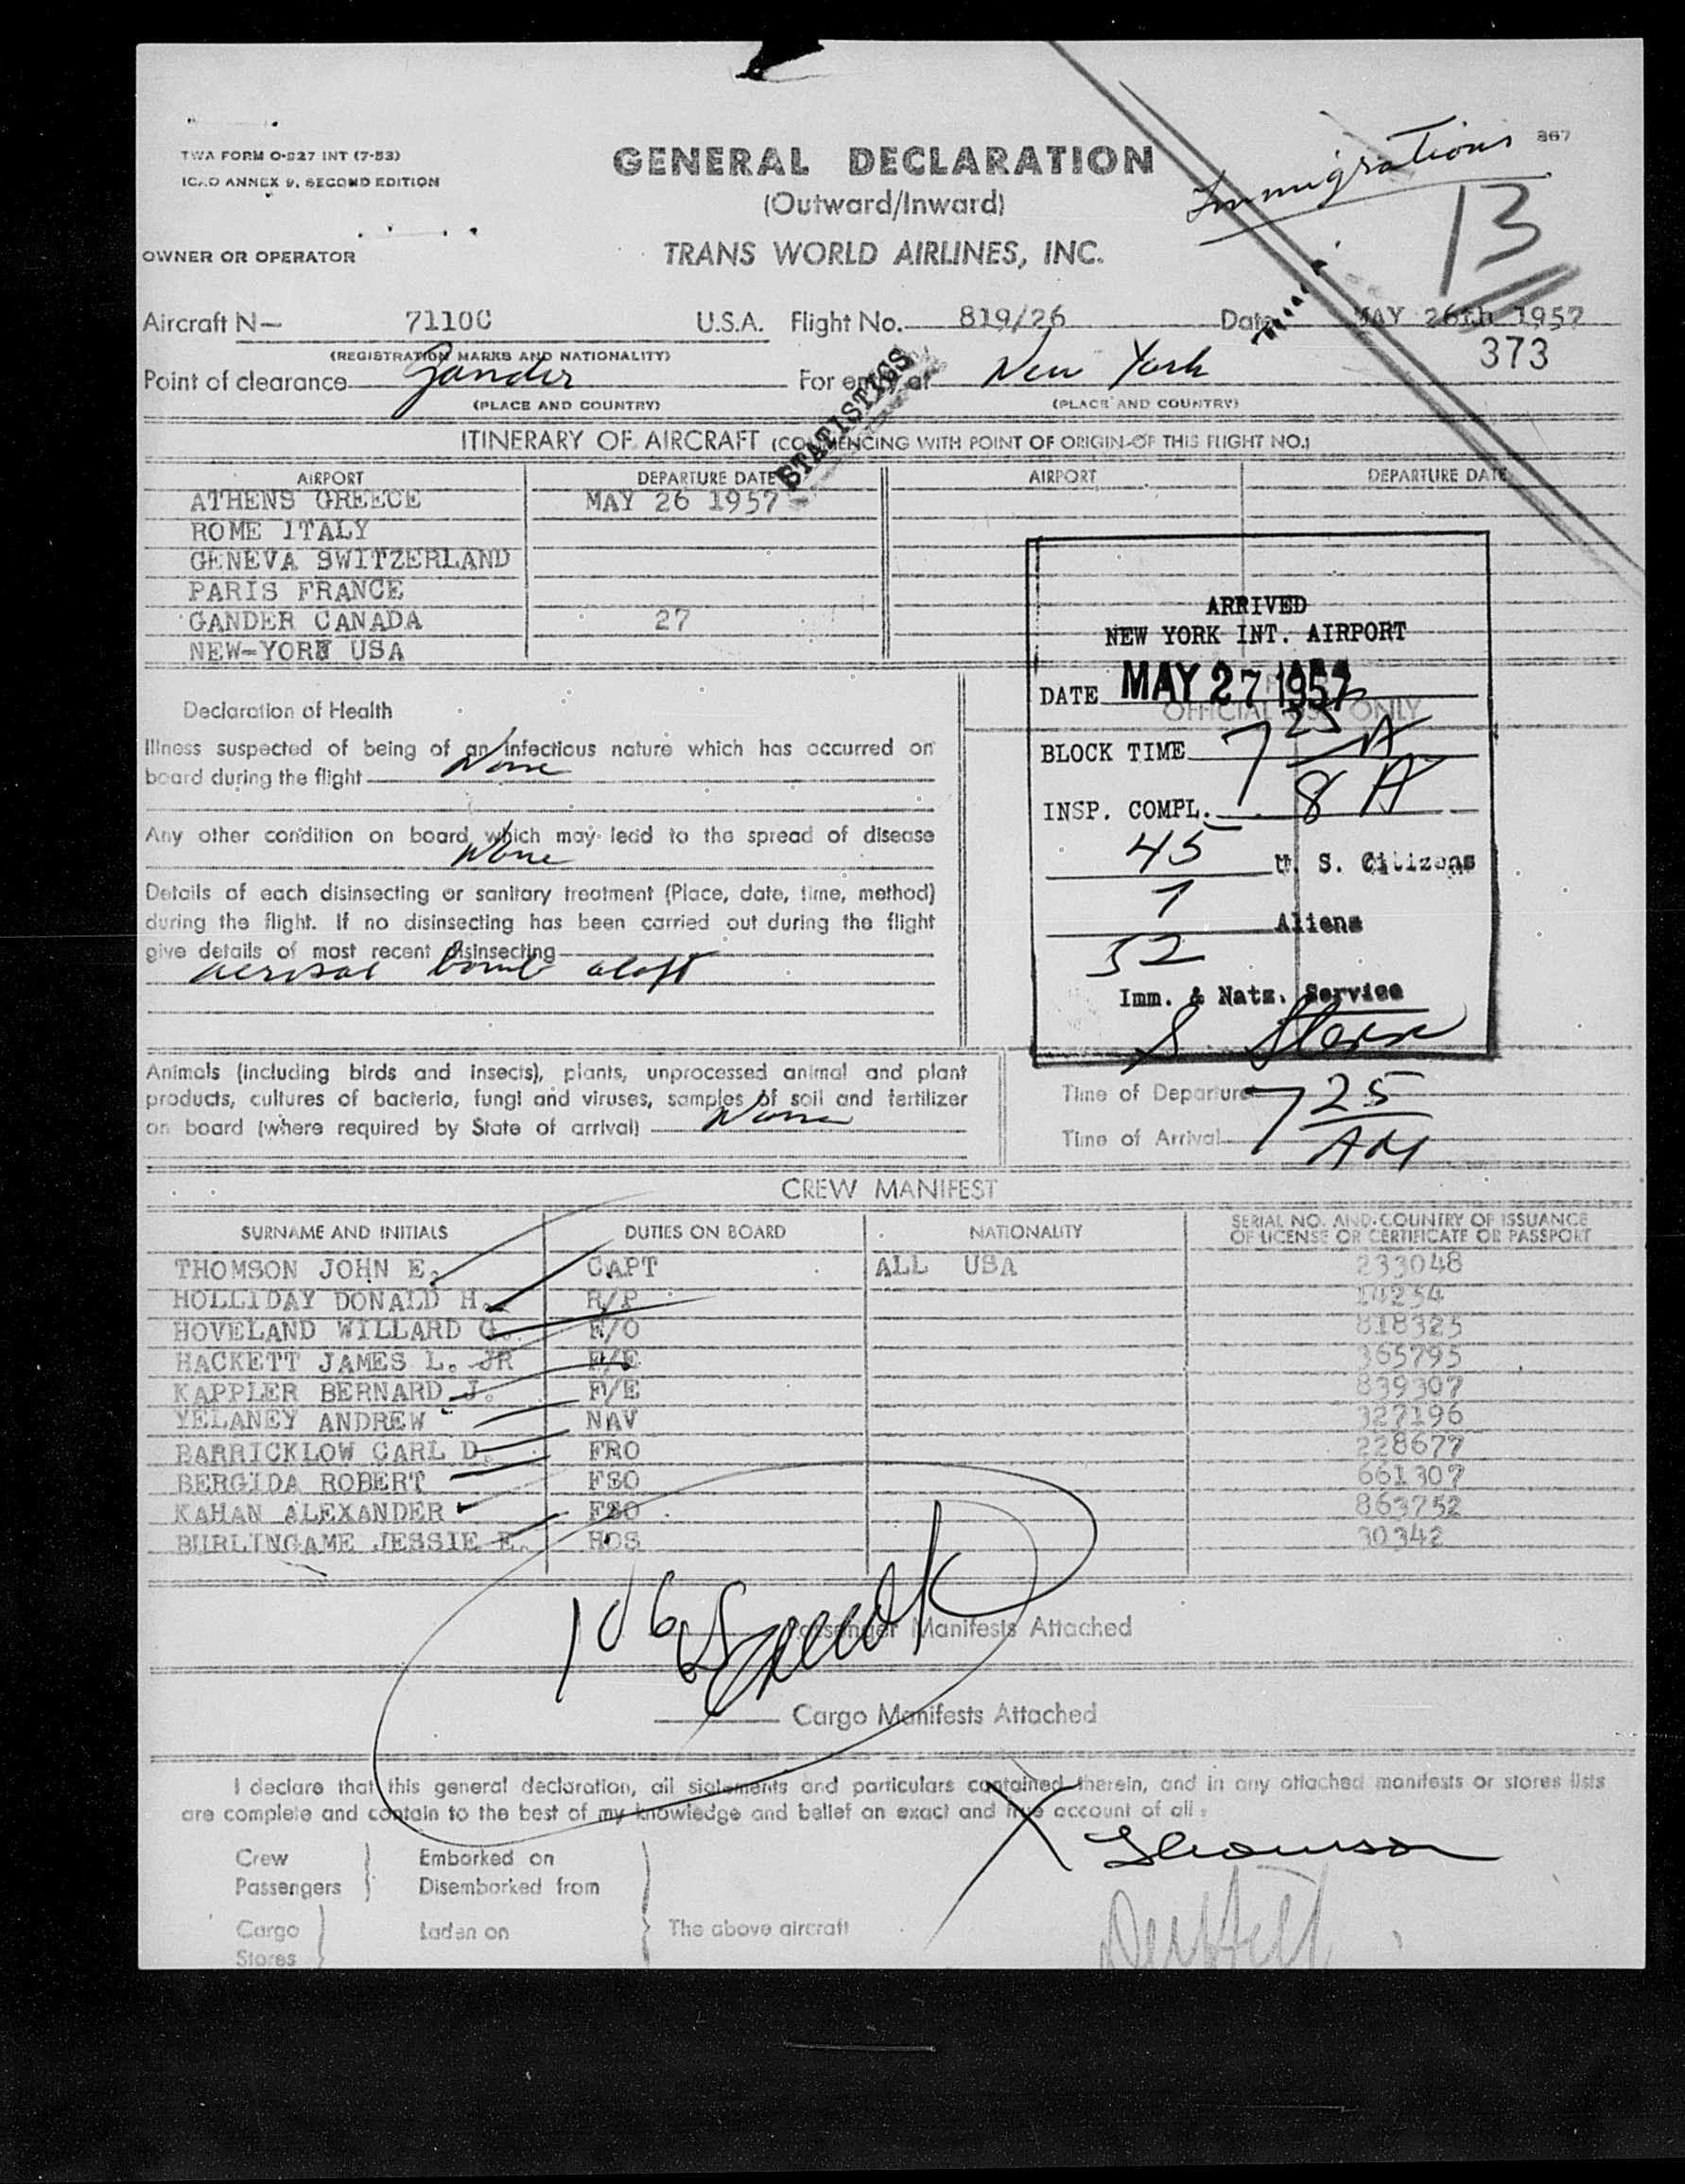 867
TWA FORM O-927 INT (7-53)
ICAO ANNEX 9, SECOND EDITION
GENERAL DECLARATION
(Outward/Inward)
Immigrations
13
OWNER OR OPERATOR
TRANS WORLD AIRLINES, INC.
Aircraft N— 7110C U.S.A. Flight No. 819/26 Date MAY 26th 1957
(REGISTRATION MARKS AND NATIONALITY)
373
Point of clearance Gander For entry at New York
(PLACE AND COUNTRY) (PLACE AND COUNTRY)
STATISTICS
ITINERARY OF AIRCRAFT (COMMENCING WITH POINT OF ORIGIN OF THIS FLIGHT NO.)
AIRPORT DEPARTURE DATE AIRPORT DEPARTURE DATE
ATHENS GREECE MAY 26 1957
ROME ITALY
GENEVA SWITZERLAND
PARIS FRANCE
GANDER CANADA 27
NEW-YORK USA
ARRIVED
NEW YORK INT. AIRPORT
DATE MAY 27 1957
OFFICIAL USE ONLY
BLOCK TIME 7 25 A
INSP. COMPL. 8 A
45 U. S. Citizens
7 Aliens
52
Imm. & Natz. Service
Declaration of Health
Illness suspected of being of an infectious nature which has occurred on
board during the flight None
Any other condition on board which may lead to the spread of disease
None
Details of each disinsecting or sanitary treatment (Place, date, time, method)
during the flight. If no disinsecting has been carried out during the flight
give details of most recent disinsecting
aerosol bomb aloft
Animals (including birds and insects), plants, unprocessed animal and plant
products, cultures of bacteria, fungi and viruses, samples of soil and fertilizer
on board (where required by State of arrival) None
Time of Departure 7 25
Time of Arrival AM
CREW MANIFEST
SURNAME AND INITIALS DUTIES ON BOARD NATIONALITY SERIAL NO. AND COUNTRY OF ISSUANCE
OF LICENSE OR CERTIFICATE OR PASSPORT
THOMSON JOHN E. CAPT ALL USA 233048
HOLLIDAY DONALD H. R/P
HOVELAND WILLARD G. F/O 818325
HACKETT JAMES L. JR F/E 365795
KAPPLER BERNARD J. F/E 839307
YELANEY ANDREW NAV 327196
BARRICKLOW CARL D. FRO 228677
BERGIDA ROBERT FSO 661307
KAHAN ALEXANDER FSO 863752
BURLINGAME JESSIE E. HOS 30342
106
Passenger Manifests Attached
Cargo Manifests Attached
I declare that this general declaration, all statements and particulars contained therein, and in any attached manifests or stores lists
are complete and contain to the best of my knowledge and belief an exact and true account of all :
Thomson
Crew Embarked on
Passengers Disembarked from
Cargo Laden on The above aircraft
Stores